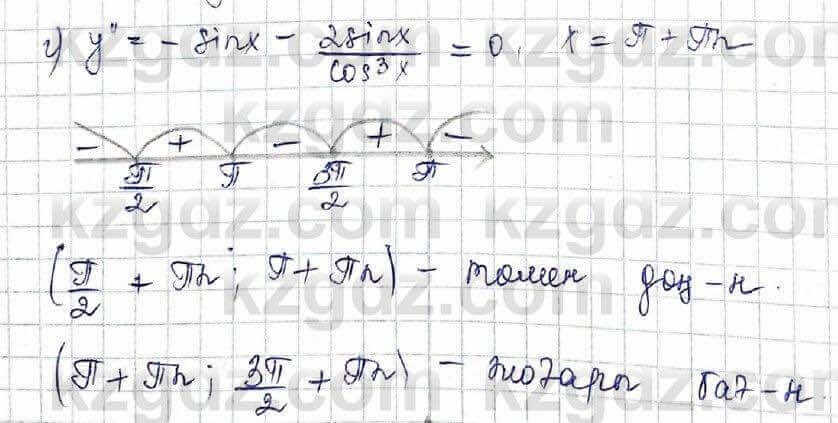 г) y'' = - sinx - 2sinx/cos³x = 0, x = π + πn
- + - + -
π/2 π 3π/2 π
(π/2 + πn; π + πn) - төмен дөң-н.
(π + πn; 3π/2 + πn) - жоғары бағ-н.
kzgdz.com